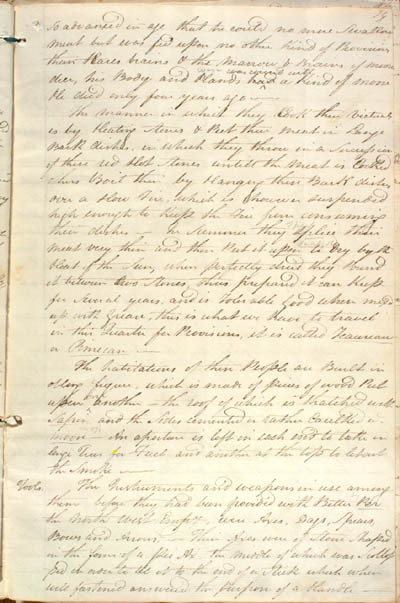 so advanced in age that he could no more
meat but was fed upon no other kind of Provision
than Hares brains & the Marrow & Brains of moose
deer, his Body and Hands was covered with a kind of moss
He died only four years ago —
The manner in which they Cook their Victuals
is by Heating Stones & Put their meat in Large
Bark dishes, in which they throw in a Succession
of these red Hot Stones untill the meat is Cooked
others Boil their by Hanging their Bark dishes
over a slow Fire, which is however suspended
high enough to keep the Fire from consuming
their dishes — in Summer they Splice their
meat very thin and then Put it upon to Dry by the
Heat of the Sun, when perfectly dried they Pound
it between two Stones, thus prepared it can keep
for several years, and is tolerable Good when mixed
up with Grease, this is what we Have to travel
in this Quarter for Provisions, it is called
or Pimecan —
The habitations of these People are Built in
oblong figure, which is made of pieces of wood Put
upon another — the roof of which is thatched with
and the sides cemented or rather Caulked in
moss — An aperture is left in each end to take in
large Trees for Fuel and another at the top to let out
the Smoke —
Tools. The Instruments and weapons in use among
them before they had been provided with Better Per
the North West Compy. were Axes, Dags, Spears,
Bows and Arrows — Their Axes were of Stone Shaped
in the form of a the middle of which was
in order to tie it to the end of a Stick which when
well fastened answered the Purpose of a Handle —